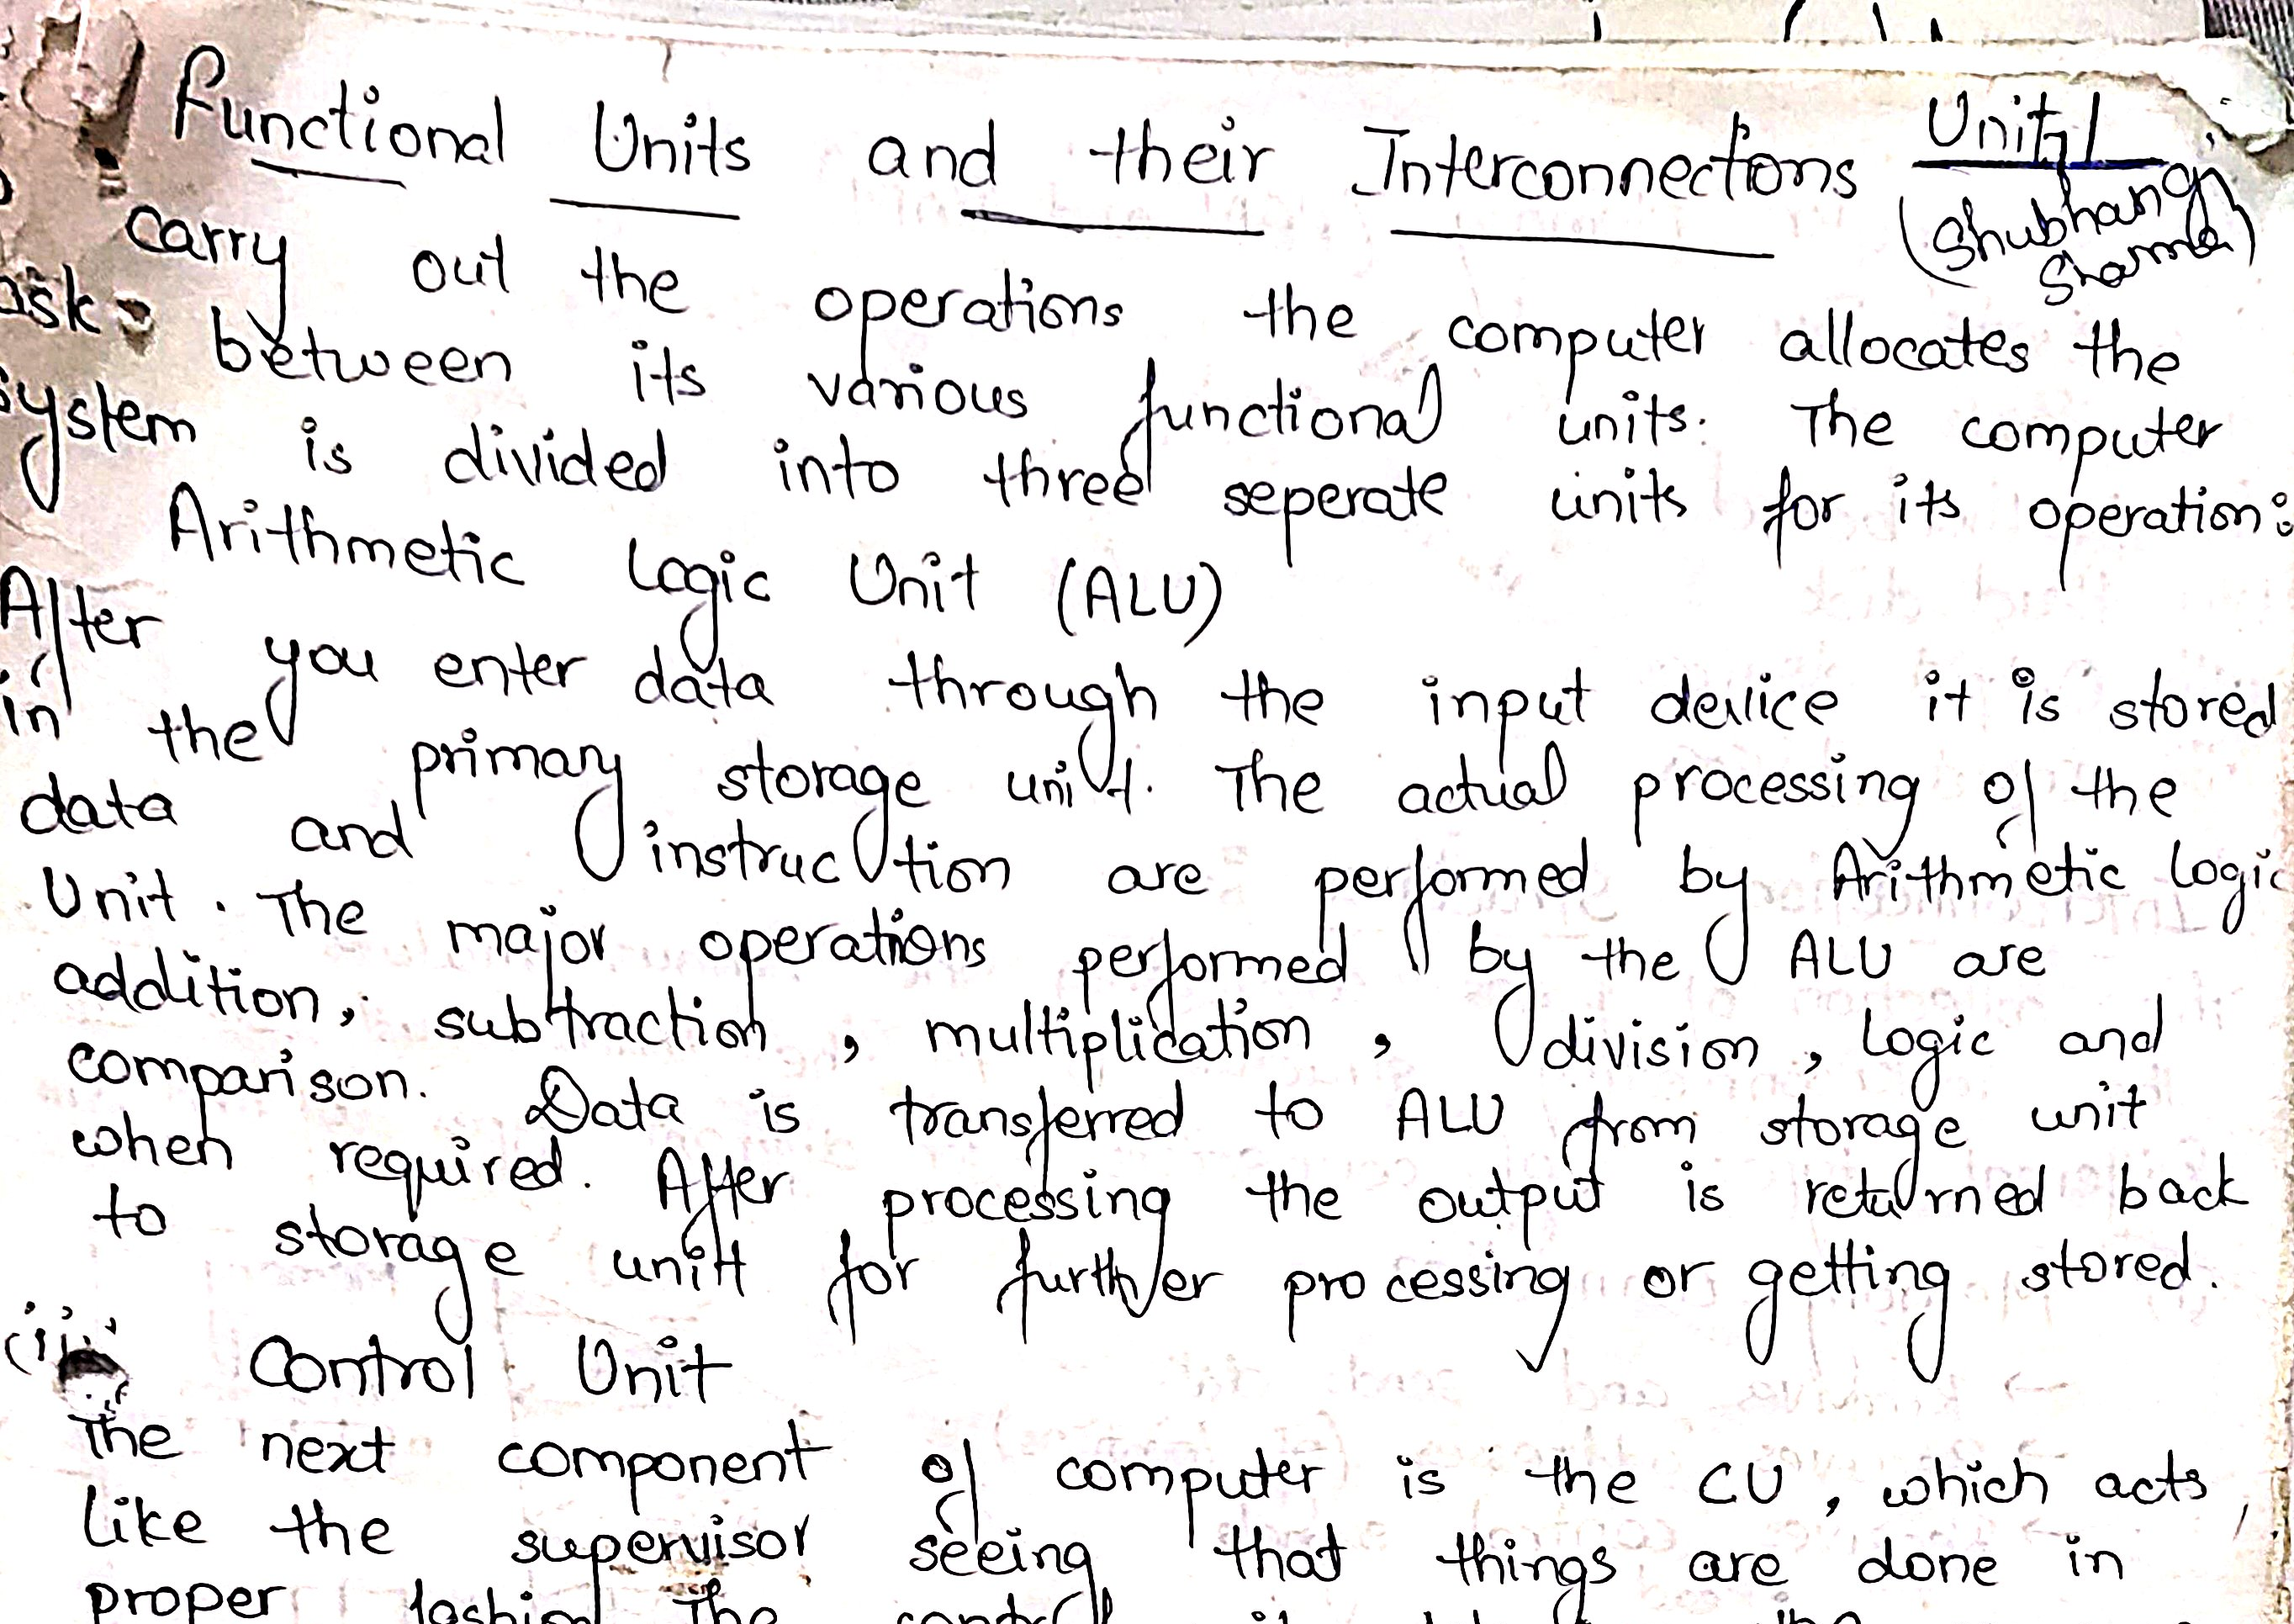 Functional Units and their Interconnections
Unit 1
(Shubhangi Sharma)
carry out the operations the computer allocates the
ask between its various functional units. The computer
system is divided into three seperate units for its operation:
Arithmetic Logic Unit (ALU)
After you enter data through the input device it is stored
in the primary storage unit. The actual processing of the
data and instruction are performed by Arithmetic Logic
Unit. The major operations performed by the ALU are
addition, subtraction, multiplication, division, logic and
comparison. Data is transferred to ALU from storage unit
when required. After processing the output is returned back
to storage unit for further processing or getting stored.
Control Unit
The next component of computer is the CU, which acts
like the supervisor seeing that things are done in
proper fashion. The